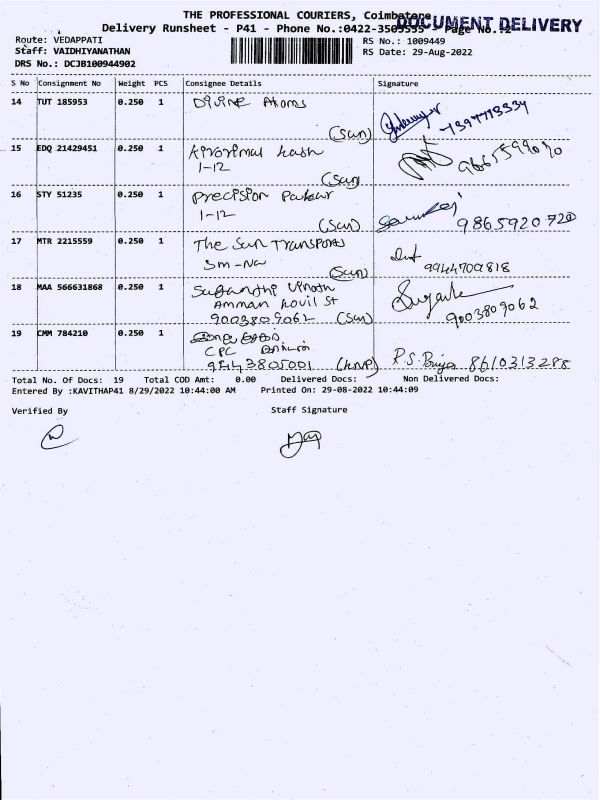 THE PROFESSIONAL COURIERS, Coimbatore
DOCUMENT DELIVERY
Delivery Runsheet - P41 - Phone No.:0422-3505535 - Page No.:2
Route: VEDAPPATI
RS No.: 1009449
Staff: VAIDHIYANATHAN
RS Date: 29-Aug-2022
DRS No.: DCJB100944902
S No Consignment No Weight PCS Consignee Details Signature
14 TUT 185953 0.250 1 Divine Atoms
(Sun)
15 EDQ 21429451 0.250 1
9665599090
1-12
(Sun)
16 STY 51235 0.250 1 Precision
1-12
(Sun) 9865920720
17 MTR 2215559 0.250 1 The Sun Transports
Sm-Na
(Sun) 9944709818
18 MAA 566631868 0.250 1 Suganthi Vinoth
Amman Kovil St
9003809062 (Sun) 9003809062
19 CMM 784210 0.250 1
CPC
(KNP) P.S. 8610313288
Total No. Of Docs: 19 Total COD Amt: 0.00 Delivered Docs: Non Delivered Docs:
Entered By :KAVITHAP41 8/29/2022 10:44:00 AM Printed On: 29-08-2022 10:44:09
Verified By Staff Signature